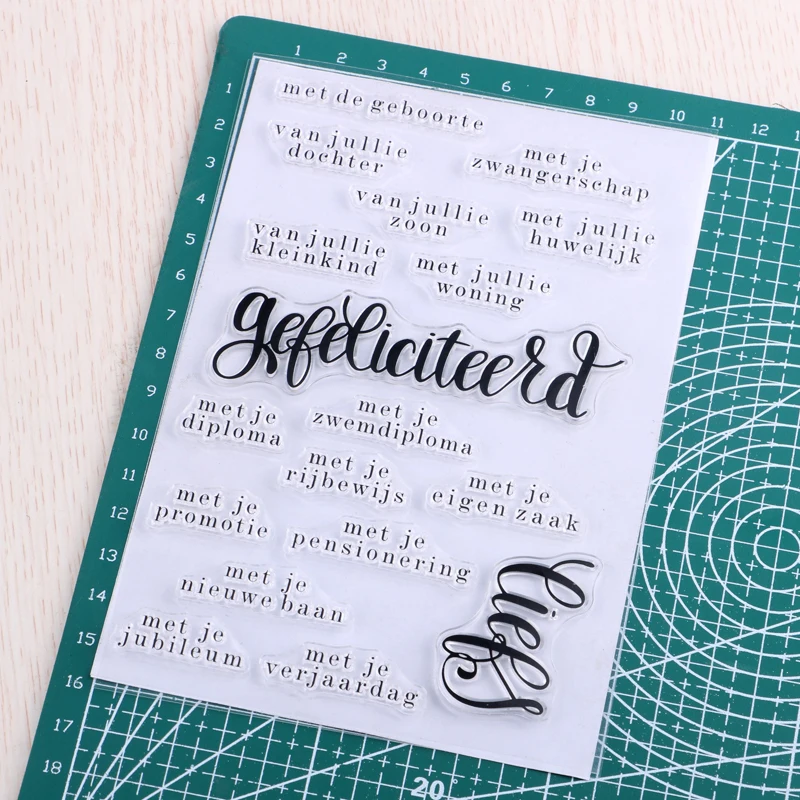 1 2 3 4 5 6 7 8 9 10 11 12
1
2
3
4
5
6
7
8
9
10
11
12
13
14
15
16
17
18
met de geboorte
van jullie
dochter
met je
zwangerschap
van jullie
zoon
met jullie
huwelijk
van jullie
kleinkind
met jullie
woning
gefeliciteerd
met je
diploma
met je
zwemdiploma
met je
rijbewijs
met je
eigen zaak
met je
promotie
met je
pensionering
met je
nieuwe baan
liefs
met je
jubileum
met je
verjaardag
20